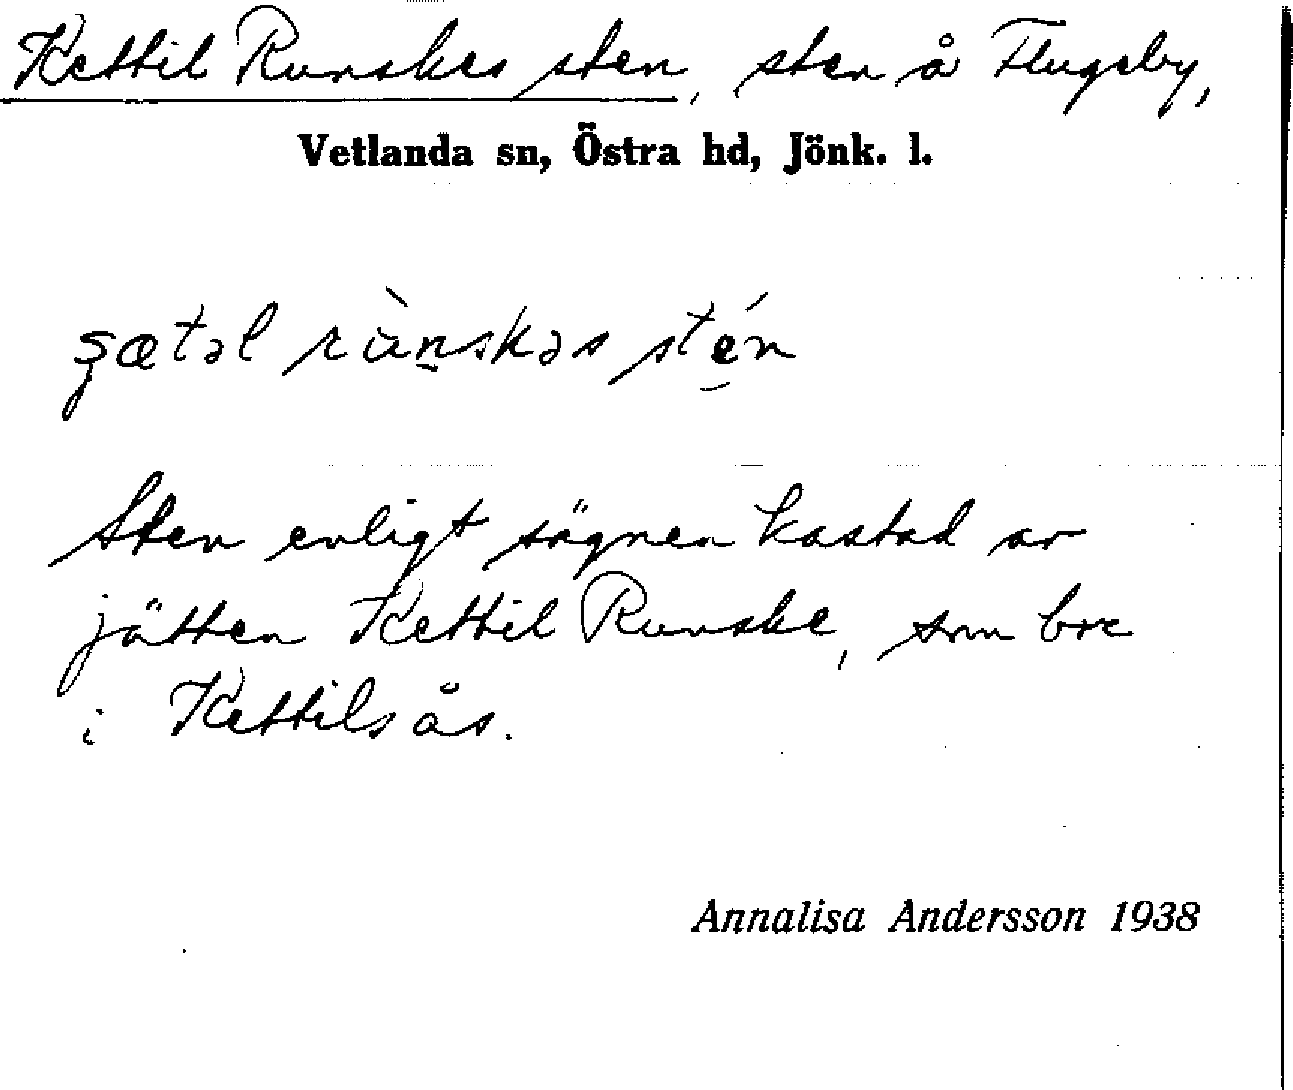 Kettil Runskes sten, sten å Flugeby,
Vetlanda sn, Östra hd, Jönk. l.
şætəl rùnskəs stén
Sten enligt sägnen kastad av
jätten Kettil Runske, som bor
i Kettilsås.
Annalisa Andersson 1938